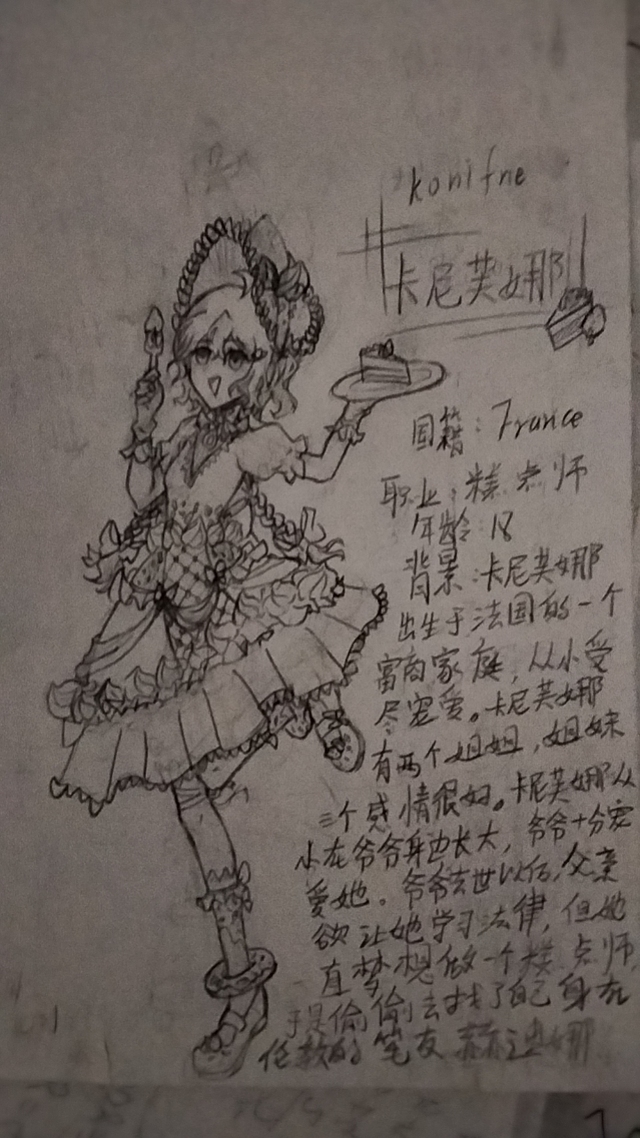 konifne
卡尼芙娜
国籍：France
职业：糕点师
年龄：18
背景：卡尼芙娜
出生于法国的一个
富商家庭，从小受
尽宠爱。卡尼芙娜
有两个姐姐，姐妹
三个感情很好。卡尼芙娜从
小在爷爷身边长大，爷爷十分宠
爱她。爷爷去世以后，父亲
欲让她学习法律，但她
一直梦想做一个糕点师
于是偷偷去找了自己身在
伦敦的笔友